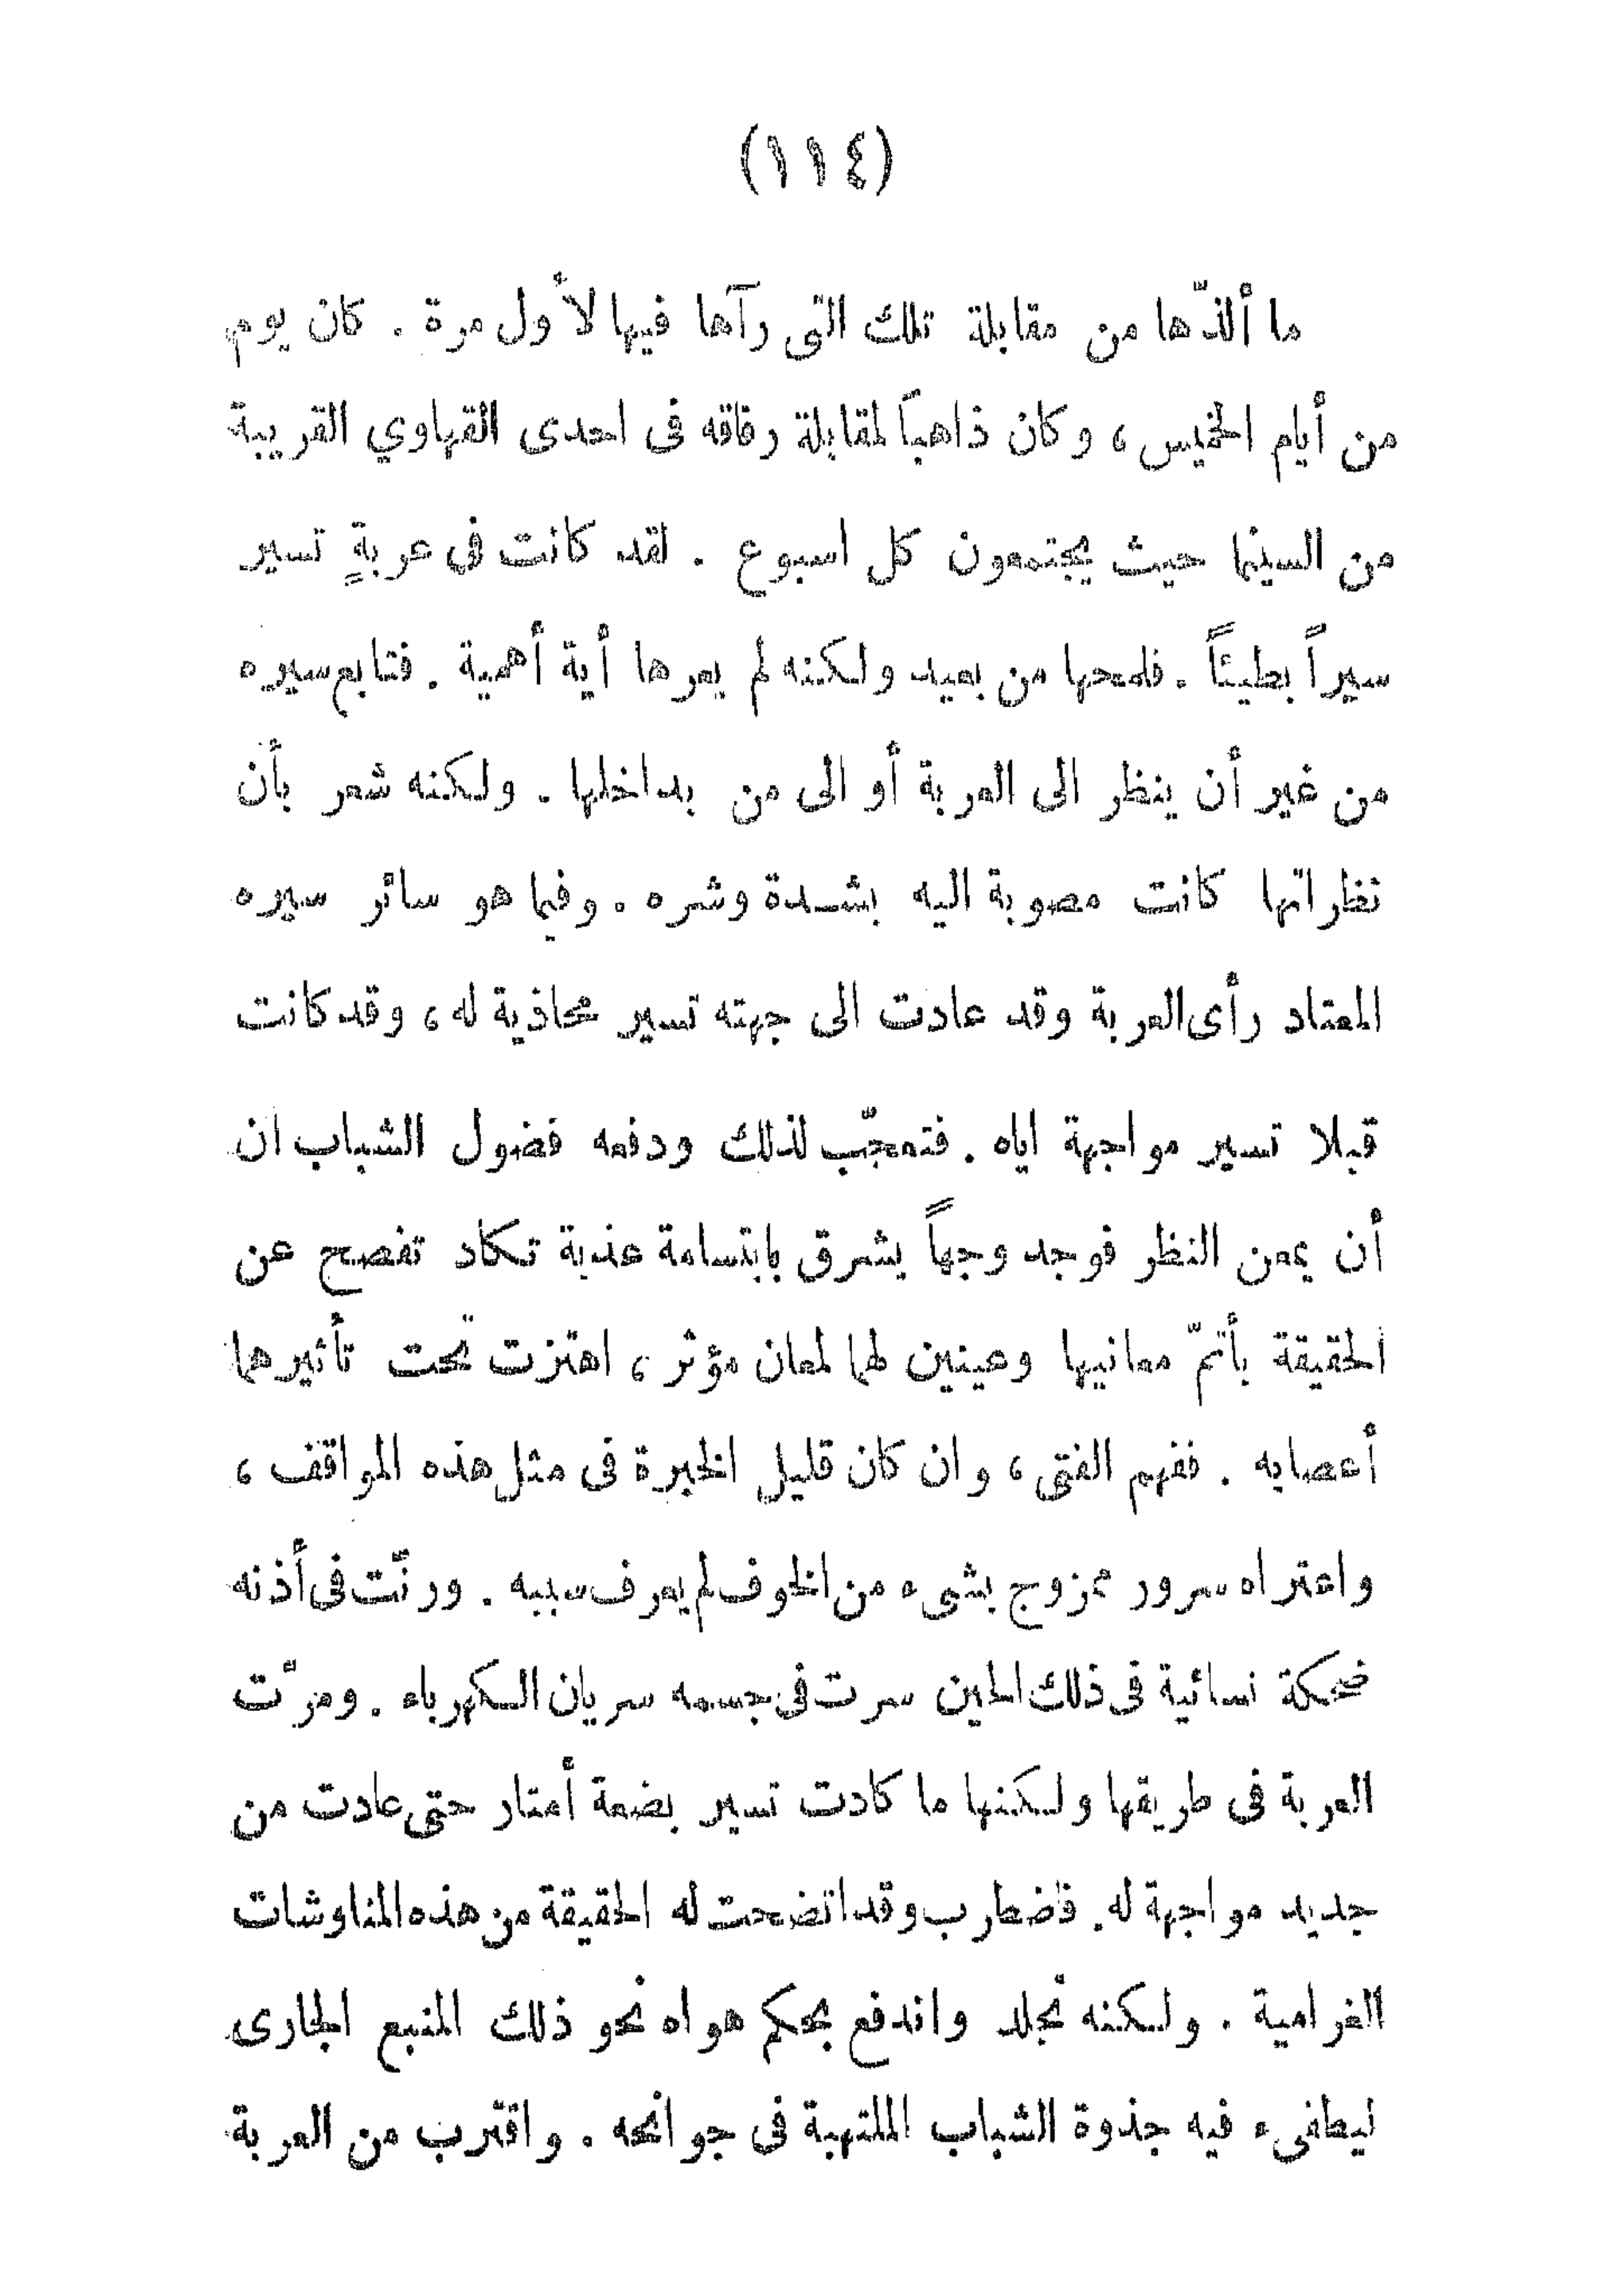 (١١٤)
ما ألذّها من مقابلة تلك التى رآها فيها لأول مرة . كان يوم
من أيام الخميس ، وكان ذاهباً لمقابلة رفاقه فى احدى القهاوي القريبة
من السينما حيث يجتمعون كل اسبوع . لقد كانت فى عربةٍ تسير
سيراً بطيئاً . فلمحها من بعيد ولكنه لم يعرها أية أهمية . فتابع سيره
من غير أن ينظر الى العربة أو الى من بداخلها . ولكنه شعر بأن
نظراتها كانت مصوبة اليه بشدة وشره . وفيما هو سائر سيره
المعتاد رأى العربة وقد عادت الى جهته تسير محاذية له ، وقد كانت
قبلا تسير مواجهة اياه . فتعجّب لذلك ودفعه فضول الشباب ان
أن يمعن النظر فوجد وجهاً يشرق بابتسامة عذبة تكاد تفصح عن
الحقيقة بأتمّ معانيها وعينين لهما لمعان مؤثر ، اهتزت تحت تأثيرهما
أعصابه . ففهم الفتى ، وان كان قليل الخبرة فى مثل هذه المواقف ،
واعتراه سرور ممزوج بشىء من الخوف لم يعرف سببه . ورنّت فى أذنه
ضحكة نسائية فى ذلك الحين سرت فى جسمه سريان الكهرباء . ومرّت
العربة فى طريقها ولكنها ما كادت تسير بضعة أمتار حتى عادت من
جديد مواجهة له . فاضطرب وقد اتضحت له الحقيقة من هذه المناوشات
الغرامية . ولكنه تجلد واندفع بحكم هواه نحو ذلك المنبع الجارى
ليطفىء فيه جذوة الشباب الملتهبة فى جوانحه . واقترب من العربة